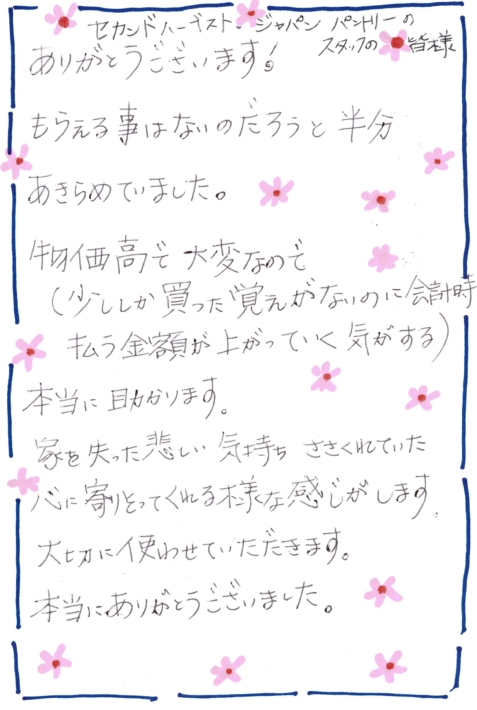 セカンドハーベスト・ジャパン パントリーの
スタッフの皆様
ありがとうございます!
もらえる事はないのだろうと半分
あきらめていました。
物価高で大変なので
(少ししか買った覚えがないのに会計時
払う金額が上がっていく気がする)
本当に助かります。
家を失った悲しい気持ち ささくれていた
心に寄りそってくれる様な感じがします。
大切に使わせていただきます。
本当にありがとうございました。